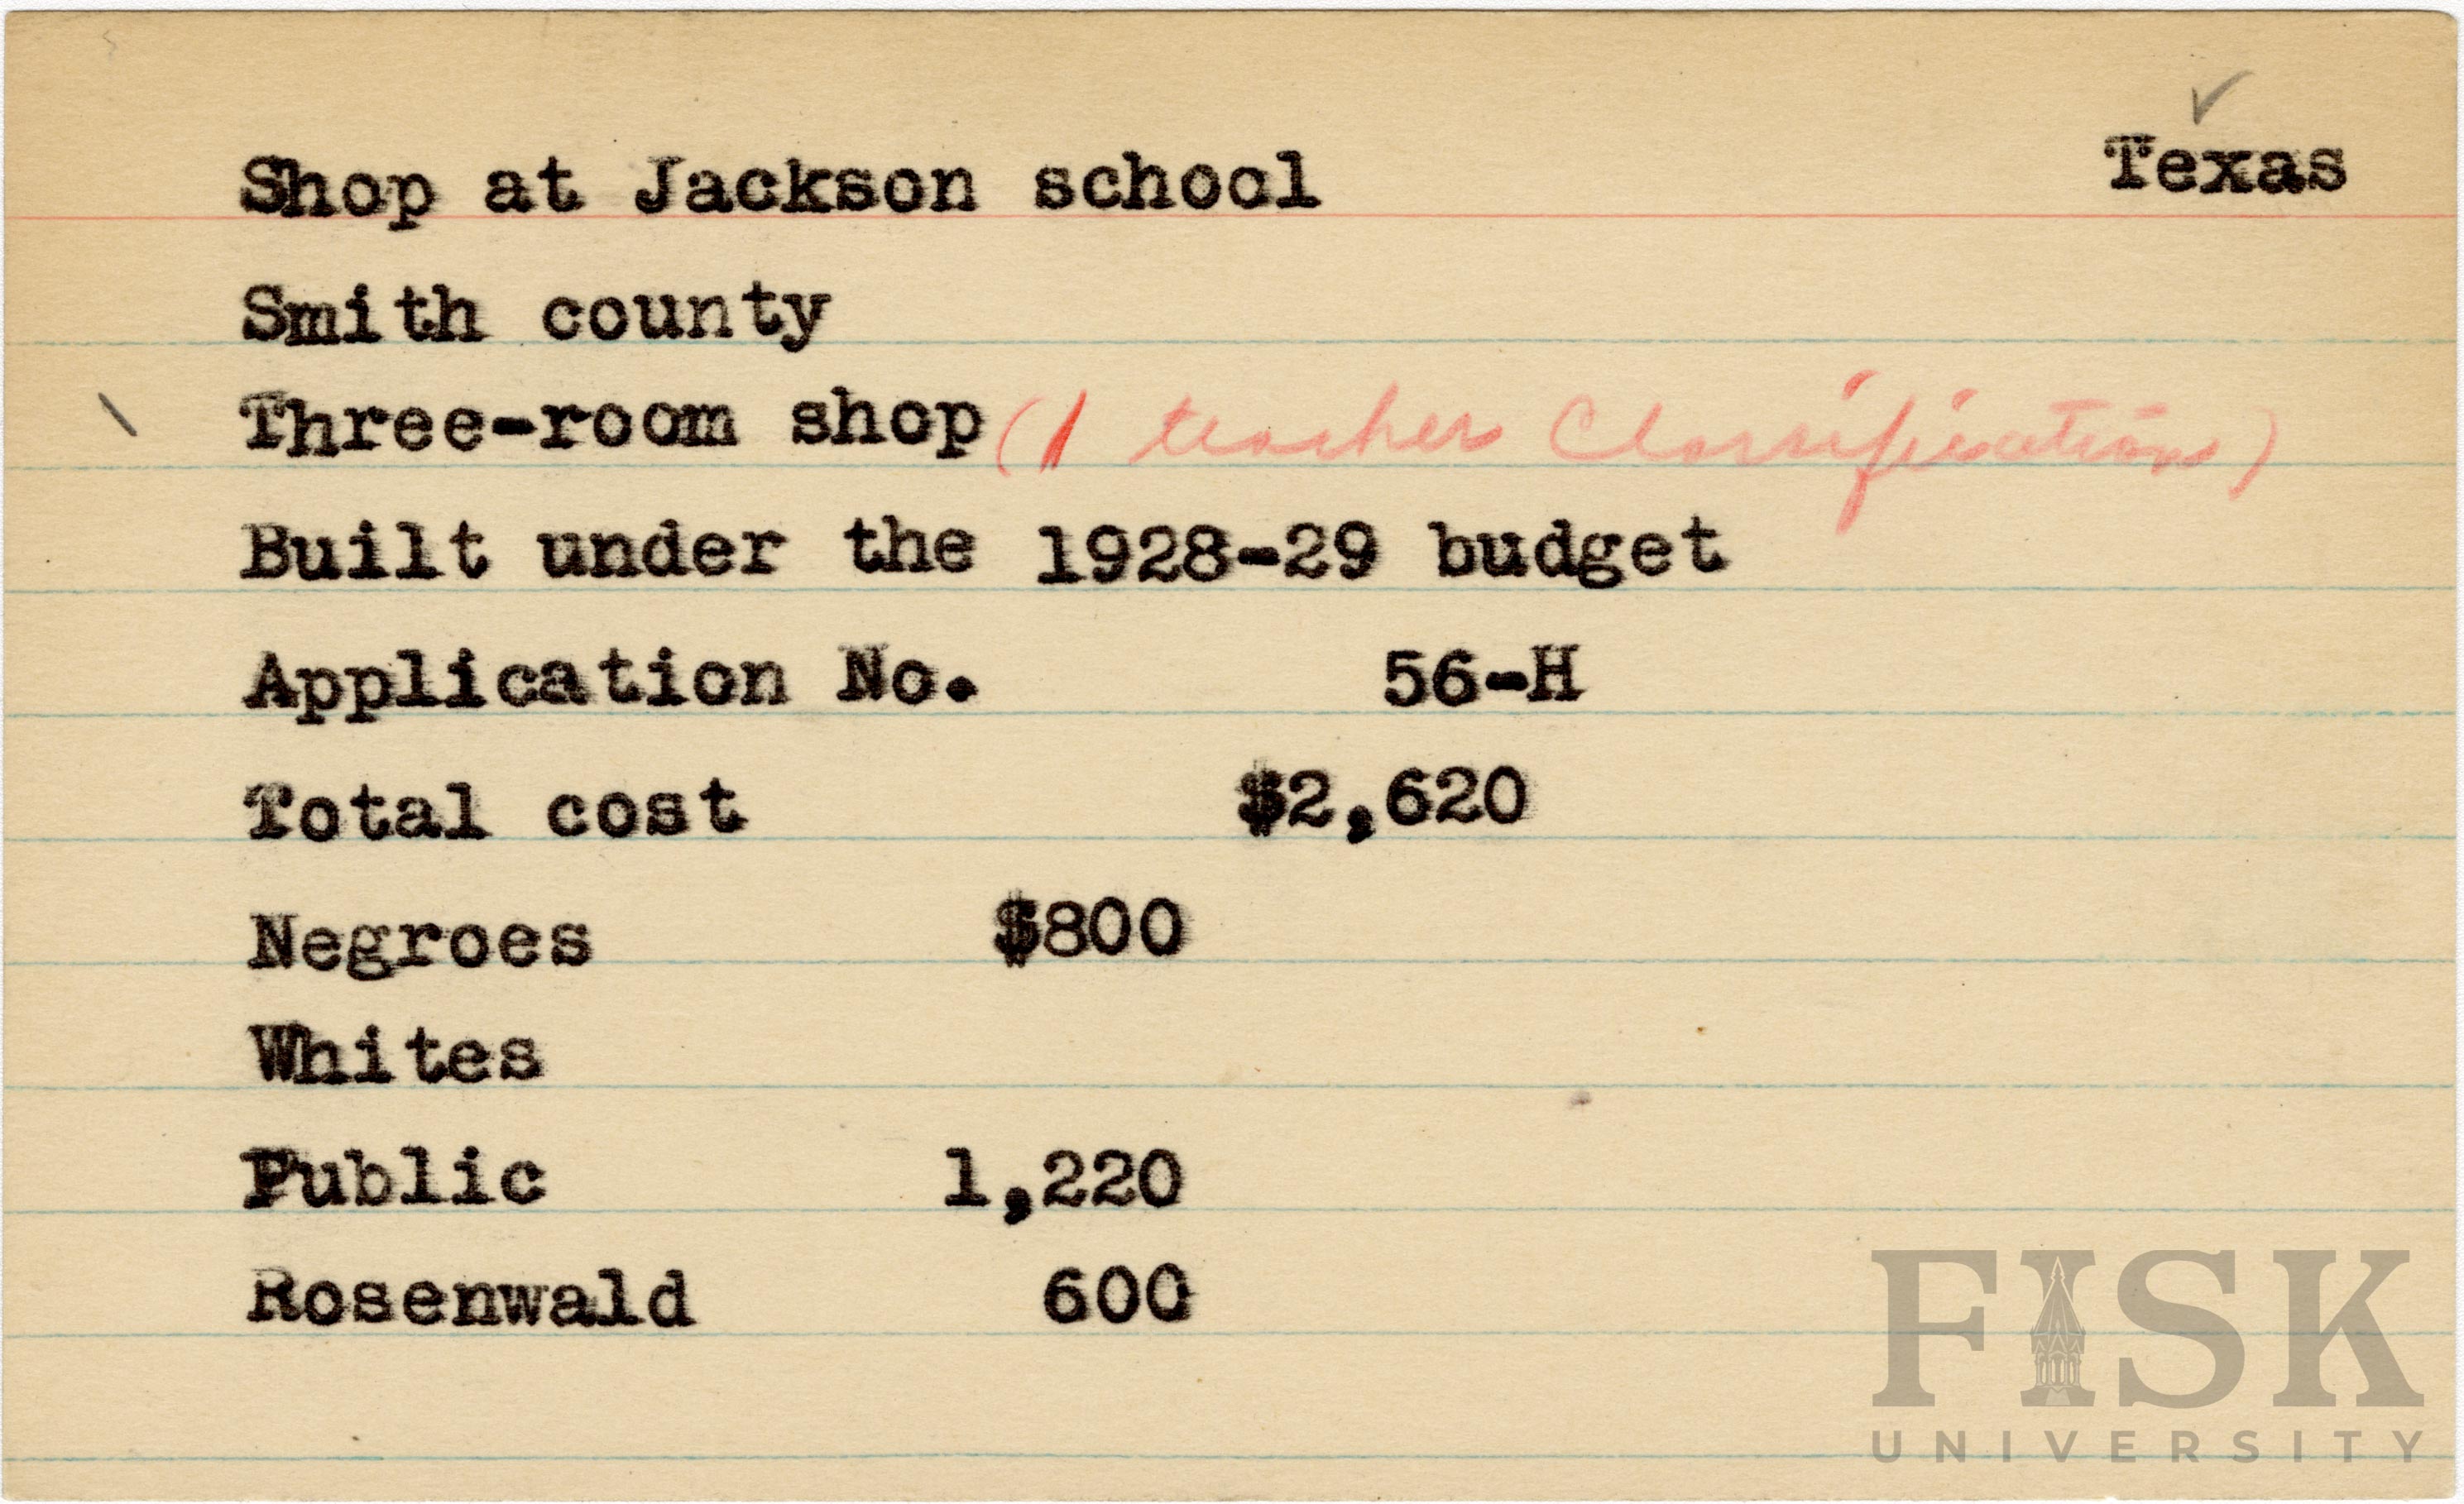 Shop at Jackson school Texas
Smith county
Three-room shop (1 teacher Classification)
Built under the 1928-29 budget
Application No. 56-H
Total cost $2,620
Negroes $800
Whites
Public 1,220
Rosenwald 600
FISK
UNIVERSITY